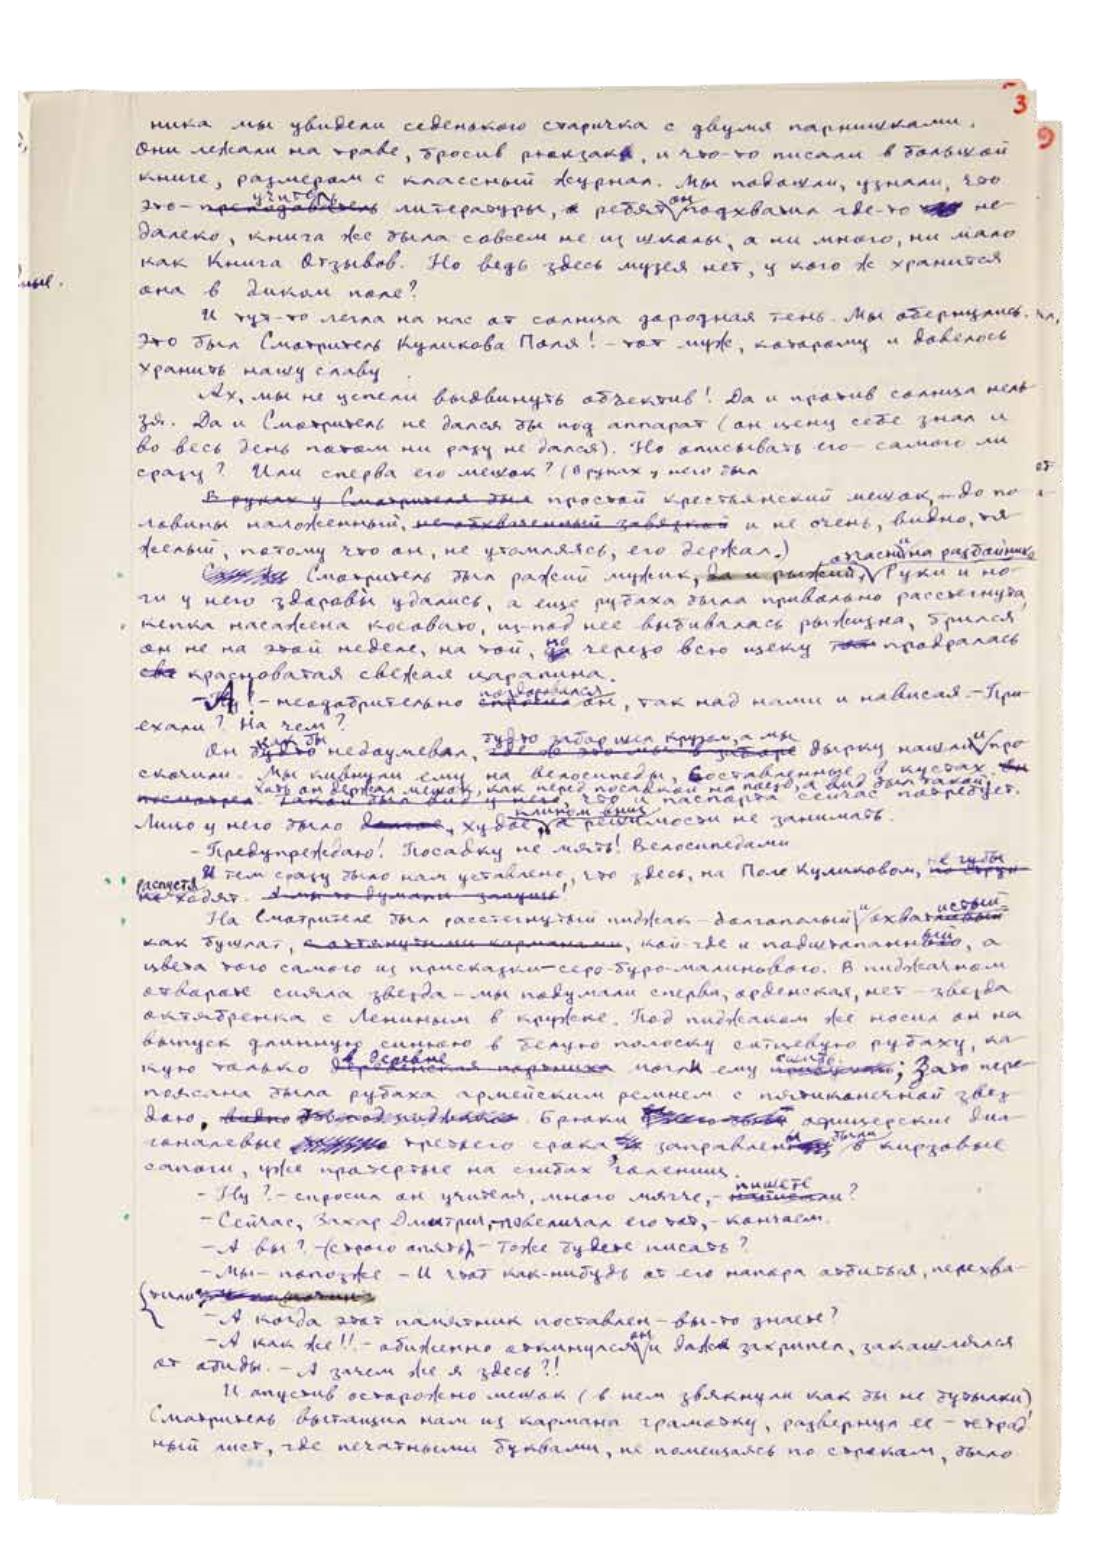 3
9
ника мы увидели седенького старичка с двумя парнишками.
Они лежали на траве, бросив рюкзаки, и что-то писали в большой
книге, размером с классный журнал. Мы подошли, узнали, что
учитель
это – преподаватель литературы, а ребят он подхватил где-то не-
далеко, книга же была совсем не из школы, а ни много, ни мало
как Книга Отзывов. Но ведь здесь музея нет, у кого ж хранится
она в диком поле?
И тут-то легла на нас от солнца дородная тень. Мы обернулись.
Это был Смотритель Куликова Поля! – тот муж, которому и довелось
хранить нашу славу.
Ах, мы не успели выдвинуть объектив! Да и против солнца нель-
зя. Да и Смотритель не дался бы под аппарат (он цену себе знал и
во весь день потом ни разу не дался). Но описывать его – самого ли
сразу? Или сперва его мешок? (В руках у него был
В руках у Смотрителя был простой крестьянский мешок, – до по-
ловины наложенный, не обхваченный завязкой и не очень, видно, тя-
желый, потому что он, не утомляясь, его держал.)
опасный на разбойника
Смотритель был ражий мужик, да и рыжий, Руки и но-
ги у него здоровы удались, а еще рубаха была привольно расстегнута,
кепка насажена косовато, из-под нее выбивалась рыжизна, брился
он не на этой неделе, на той, но через всю щеку продралась
красноватая свежая царапина.
поздоровался
– А! – неодобрительно спросил он, так над нами и нависая. – При-
ехали? На чем?
как бы будто забор шел кругом, а мы
Он будто недоумевал, дырку нашли и про-
скочили. Мы кивнули ему на велосипеды, составленные в кустах.
Хоть он держал мешок, как перед посадкой на поезд, а вид был такой,
посмотрел. Такой был вид у него, что и паспорта сейчас потребует.
клином вниз
Лицо у него было долгое, худое, а решимости не занимать.
– Предупреждаю! Посадку не мять! Велосипедами
И тем сразу было нам уставлено, что здесь, на Поле Куликовом, не губы
распустя
ходят.
На Смотрителе был расстегнутый пиджак – долгополый и охватистый
как бушлат, с оттянутыми карманами, кой-где и подштопанный, а
цвета того самого из присказки – серо-буро-малинового. В пиджачном
отвороте сияла звезда – мы подумали сперва, орденская, нет – звезда
октябренка с Лениным в кружке. Под пиджаком же носил он на
выпуск длинную синюю в белую полоску ситцевую рубаху, ка-
в деревне сшить
кую только деревенская портниха могли ему; Зато пере-
поясана была рубаха армейским ремнем с пятиконечной звез-
дою. Брюки офицерские диа-
гоналевые третьего срока заправлены были в кирзовые
сапоги, уже протертые на сгибах голенищ.
пишете
– Ну? – спросил он учителя, много мягче, – написали?
– Сейчас, Захар Дмитрич, – повеличал его тот, – кончаем.
– А вы? – (строго опять) – Тоже будете писать?
– Мы – попозже – И чтоб как-нибудь от его напора отбиться, перехва-
тили:
– А когда этот памятник поставлен – вы-то знаете?
– А как же!! – обиженно откинулся он и даже захрипел, закашлялся
от обиды. – А зачем же я здесь?!
И опустив осторожно мешок (в нем звякнули как бы не бутылки)
Смотритель вытащил нам из кармана грамотку, развернул ее – тетрад-
ный лист, где печатными буквами, не помещаясь по строкам, было